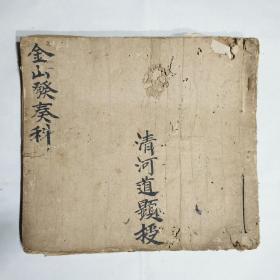 金山發奏科
清河道顯投